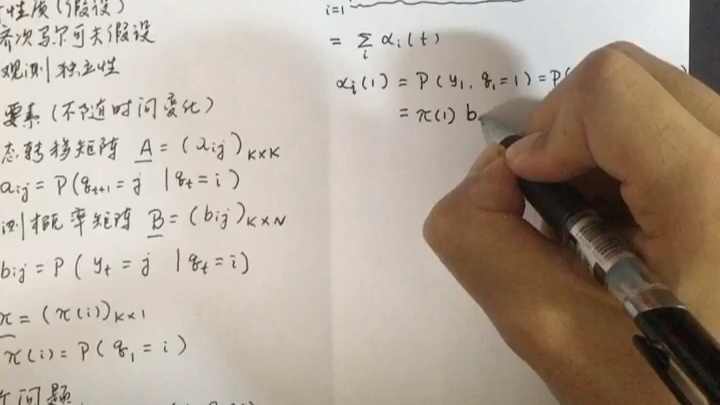 性质(假设)
齐次马尔可夫假设
观测独立性
要素(不随时间变化)
态转移矩阵 A = (aij)K×K
aij = P(qt+1 = j | qt = i)
测概率矩阵 B = (bij)K×N
bij = P(yt = j | qt = i)
π = (π(i))K×1
π(i) = P(q1 = i)
个问题
i=1
= Σi αi(t)
αi(1) = P(y1, q1 = 1) = P(
= π(1) b